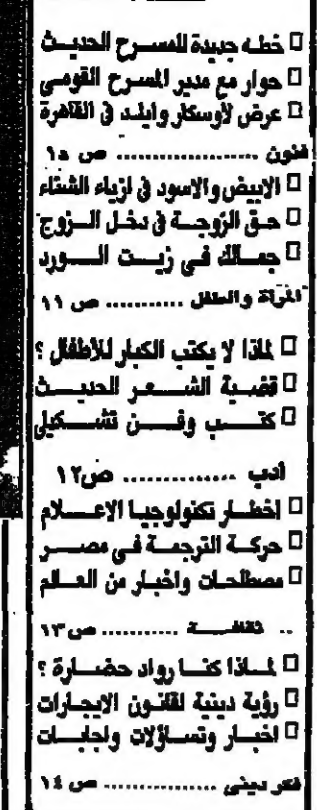 □ خطة جديدة للمسرح الحديث
□ حوار مع مدير المسرح القومى
□ عرض لأوسكار وايلد فى القاهرة
فنون .................. ص ١٥
□ الابيض والاسود فى ازياء الشتاء
□ حق الزوجة فى دخل الزوج
□ جمالك فى زيت الورد
المرأة والطفل ........... ص ١١
□ لماذا لا يكتب الكبار للأطفال ؟
□ قضية الشعر الحديث
□ كتب وفن تشكيلى
أدب .............. ص١٢
□ اخطار تكنولوجيا الاعلام
□ حركة الترجمة فى مصر
□ مصطلحات واخبار من العالم
.. ثقافة ........... ص١٣
□ لماذا كنا رواد حضارة ؟
□ رؤية دينية لقانون الايجارات
□ اخبار وتساؤلات واجابات
فكر دينى ................ ص ١٤